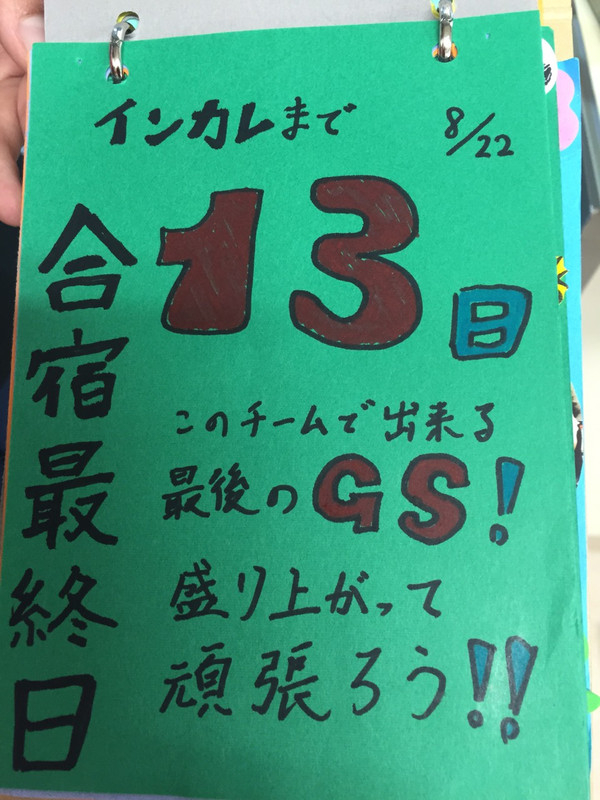 インカレまで
8/22
13日
合宿最終日
このチームで出来る
最後のGS!
盛り上がって
頑張ろう!!